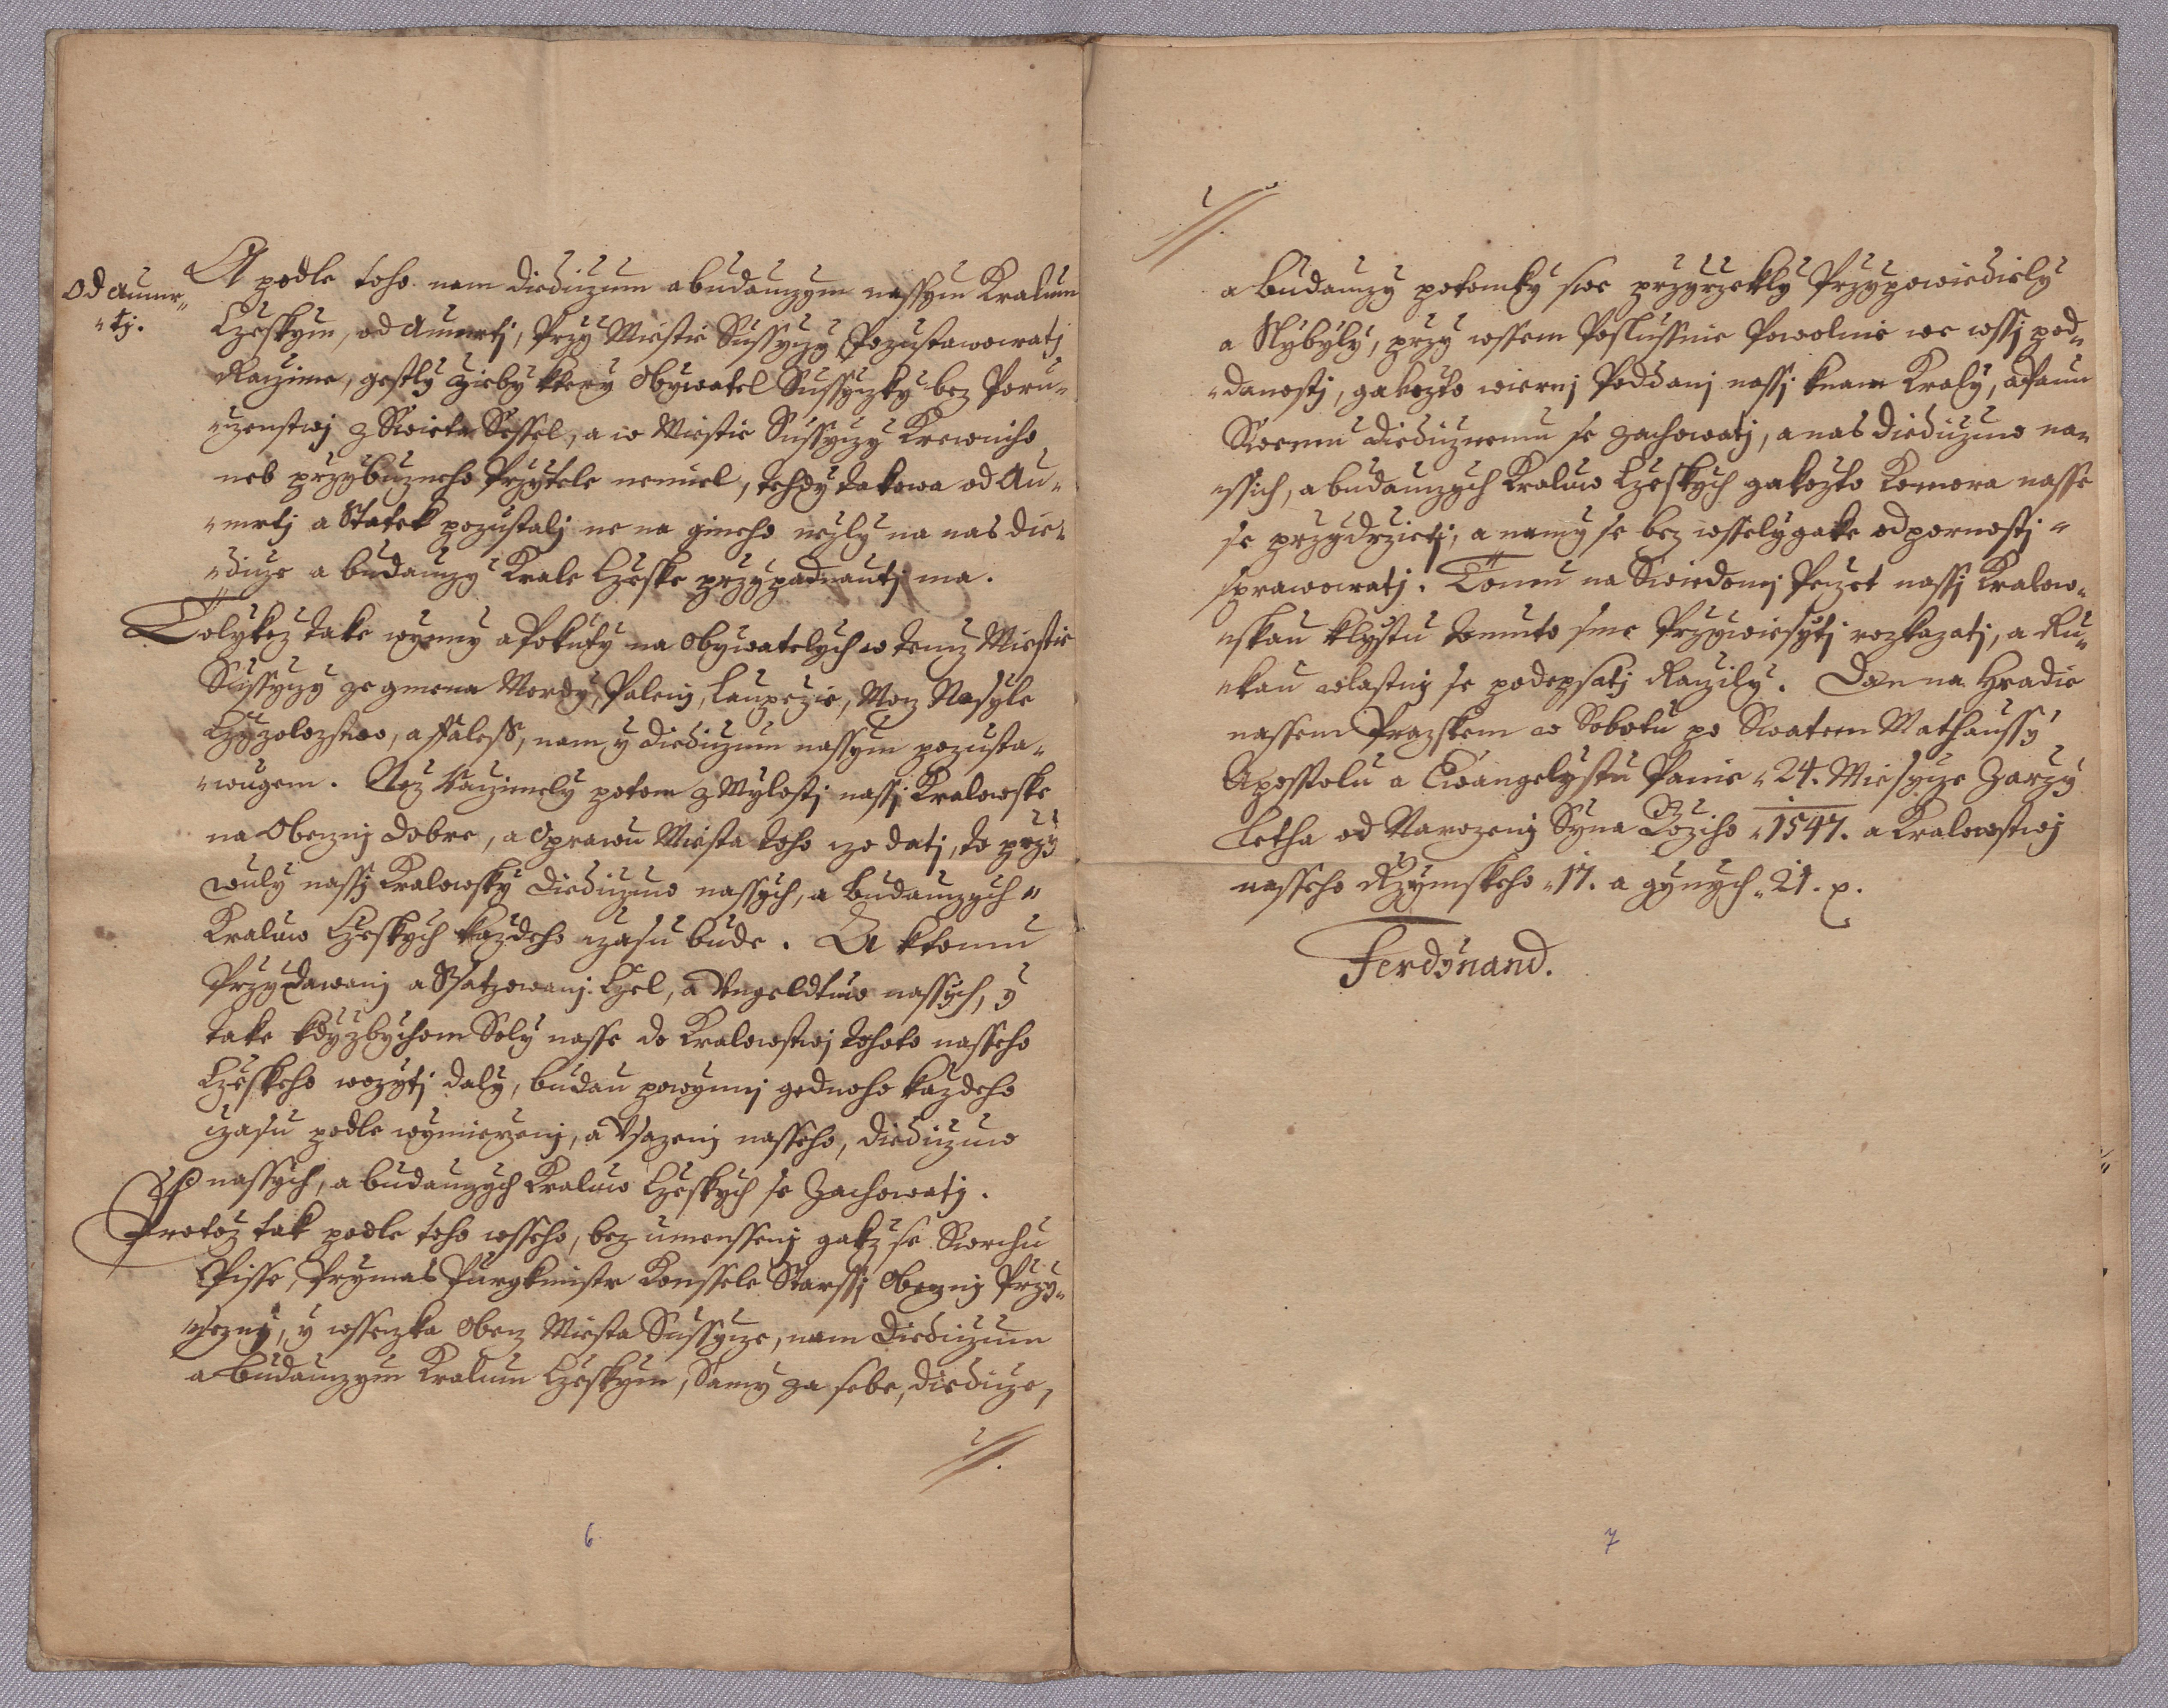 Od aumr„
„tj.
A podle toho nam diediczum a budauczym nassym Kralum
Czeskym, od aumrtj, Przy Miestie Sussyczy Pozustawowatj
Raczime, gestly zieby ktery Obywatel Sussyczky bez Poru„
„czenstwj z Swieta Sessel, a w Miestie Sussyczy Krewniho
neb przybuzneho Przytele nemiel, tehdy takowa od Au„
„mrtj a Statek pozustalj ne na gineho nezly na nas die„
„dicze a budauczy Krale Czeske przypadnautj ma.
Tolykez take wynny a Pokuty na Obywatelych w temz Miestie
Sussyczy ze gmena Mordy, Palenj, Laupezie, Mocz Nasyle
Czyzolozstwo, a ffaless, nam, y diediczum nassym pozusta„
„wugem. Nez Raczimely potom z Mylostj nassj Kralowske
na Obecznj dobre, a Oprawu Miesta toho czo datj, to przy
wuly nassj Kralowsky diediczuw nassych, a budauczych„
Kraluw Czeskych kazdeho czasu bude. A ktomu
Przydawanj a Ssatzowanj Czel, a Vngeldtuw nassych, y
take kdyzbychom Soly nasse do Kralowstwj tohoto nasseho
Czeskeho wozytj daly, budau powynnj gednoho kazdeho
czasu podle wymierzenj, a Vsazenj nasseho, diediczuw
nassych, a budauczych Kraluw Czeskych se Zachowatj.
Protoz tak podle toho wsseho, bez umenssenj gakz se Swrchu
Pisse, Prymas Purgkmistr Konssele Starssj Obecznj Przy„
„sezny, y wsseczka Obecz Miesta Sussycze, nam diediczum
a budauczym Kralum Czeskym, Samy za sebe, diedicze,
6
a budauczy potomky swe przyrzekly Przypowiediely
a Slybyly, przy wssem Poslussnie Powolnie we wssj pod„
„danostj, gakozto wiernj Poddanj nassj knam Kraly, a Panu
Swemu diedicznemu se zachowatj, a nas diediczuw na„
„ssich, a budauczych Kraluw Czeskych gakozto Komora nasse
se przydrzietj, a namy se bez wsselygake odpornostj„
sprawowatj. Tomu na Swiedomj Peczet nassj Kralow„
„skau klystu tomuto sme Przywiesytj rozkazatj, a Ru„
„kau wlastnj se podepsatj Raczily. Dan na Hradie
nassem Prazskem w Sobotu po Swatem Mathaussy
Aposstolu a Ewangelystu Panie „24. Miesycze Zarzy
Letha od Narozenj Syna Boziho „1547. a Kralowstwj
nasseho Rzymskeho „17. a gynych „21. p.
Ferdynand.
7